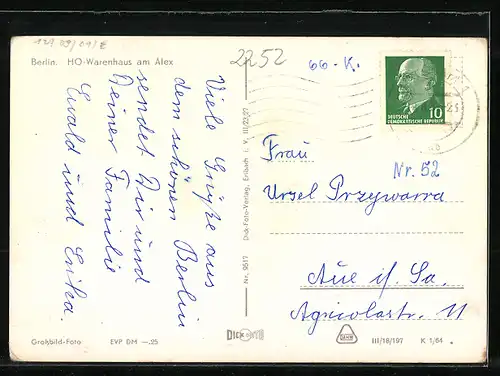 121 09/01/E
Berlin. HO-Warenhaus am Alex
2252
66-K.
Viele Grüße aus
dem schönen Berlin
sendet Dir und
Deiner Familie
Ewald und Erika.
10
DEUTSCHE
DEMOKRATISCHE REPUBLIK
Nr. 52
Frau
Ursel Przywarra
Aue i/Sa.
Agricolastr. 11
Nr. 9512 Dick-Foto-Verlag, Erlbach i. V. III/22/27
Großbild-Foto EVP DM —.25
DICK FOTO
III/18/197 K 1/64